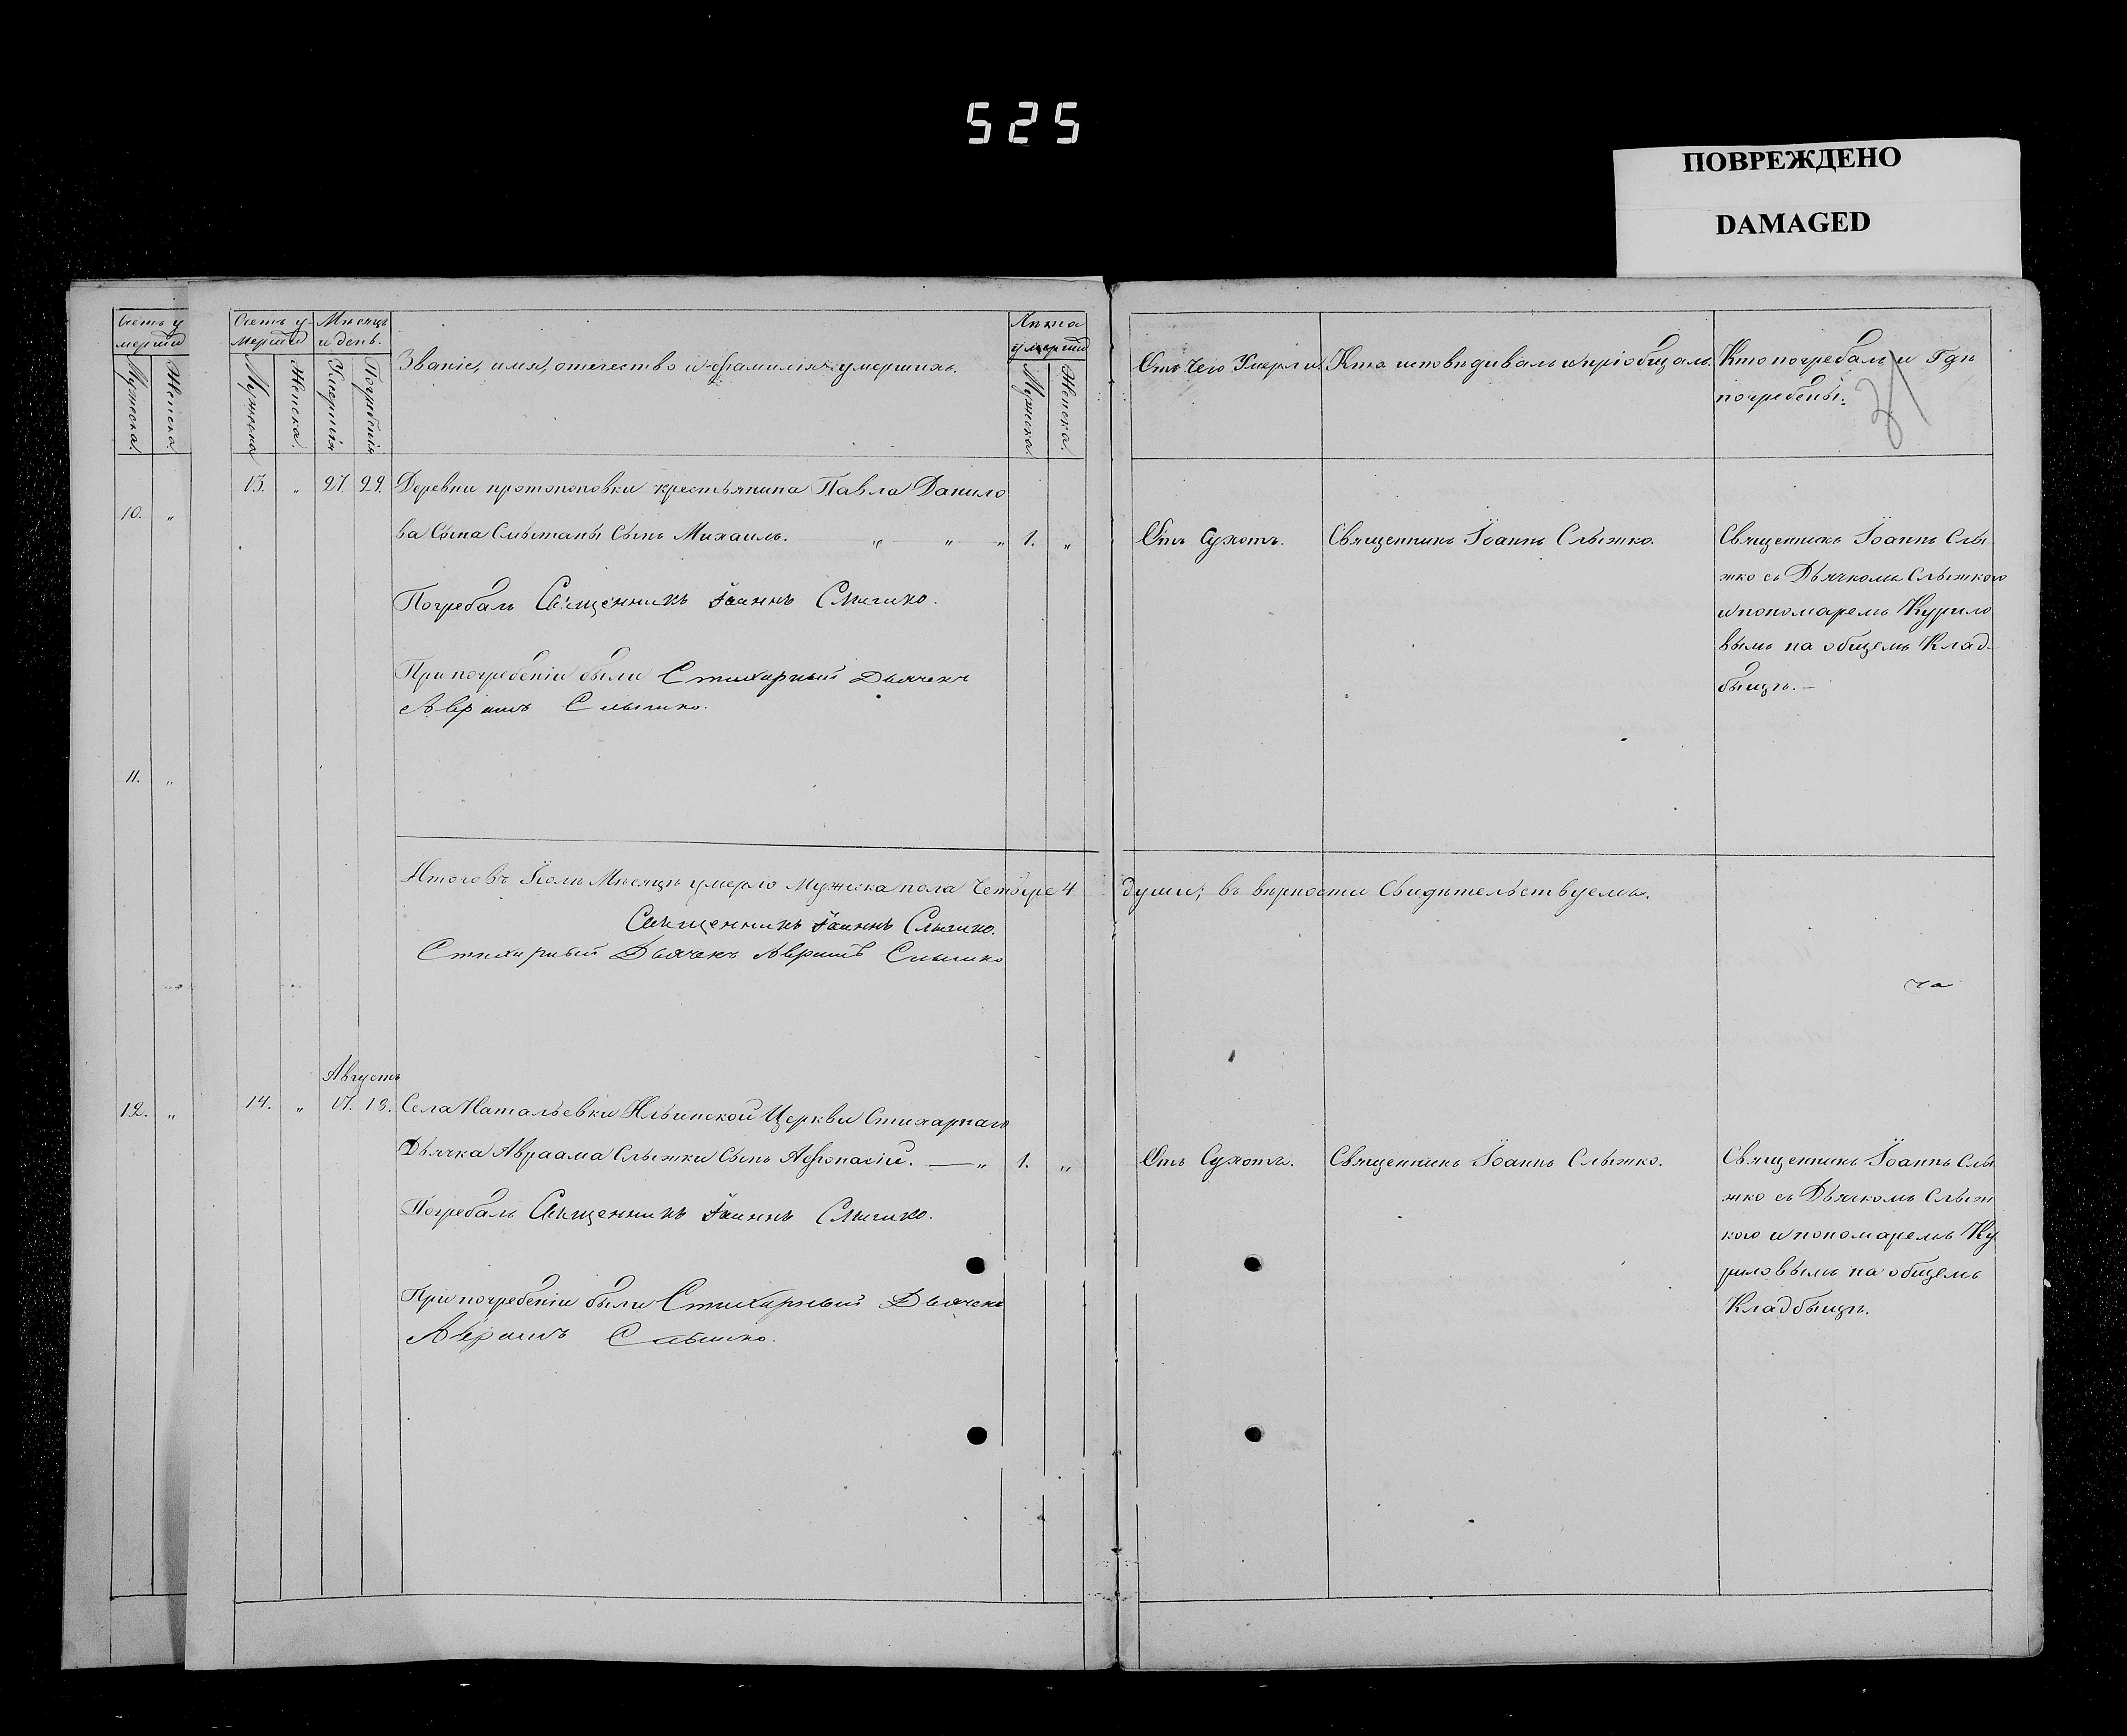 525
ПОВРЕЖДЕНО
DAMAGED
Счетъ у
мершихъ
Мужеска.
Женска.
10. „
11. „
12. „
Счетъ у-
мершихъ
Мужеска
Женска.
Мѣсяцъ
и день.
Умертія
Погребенія
Званіе, имя, отечество и фамилія умершихъ.
Лѣта
умершихъ
Мужеска
Женска.
Отъ чего Умерли.
Кто исповѣдивалъ и пріобщалъ.
Кто погребалъ и Гдѣ
погребены.
31
13. „ 27. 29. Деревни протопоповки крестьянина Павла Данило
ва Сына Смытаны Сынъ Михаилъ. „ „ „ 1. „
Отъ Сухотъ.
Священникъ Іоаннъ Слыжко.
Священникъ Іоаннъ Слы
жко съ Дьячкомъ Слыжкою
и пономаремъ Курило
вымъ на общемъ Клад-
быщѣ.—
Погребалъ Священникъ Іоаннъ Слыжко.
При погребеніи были Стихарный Дьячекъ
Авраамъ Слыжко.
Итого въ Іюлѣ Мѣсяцѣ умерло Мужеска пола Четыре 4 души; въ вѣрности Свидѣтельствуемъ.
Священникъ Іоаннъ Слыжко.
Стихарный Дьячекъ Авраамъ Слыжко
на
Августъ
14. „ 17. 18. Села Натальевки Ильинской Церкви Стихарнаго
Дьячка Авраама Слыжки Сынъ Афонасій. — „ 1. „
Отъ Сухотъ.
Священникъ Іоаннъ Слыжко.
Священникъ Іоаннъ Слы
жко съ Дьячкомъ Слыж
кою и пономаремъ Ку
риловымъ на общемъ
Кладбыщѣ.
Погребалъ Священникъ Іоаннъ Слыжко.
При погребеніи были Стихарный Дьячекъ
Авраамъ Слыжко.